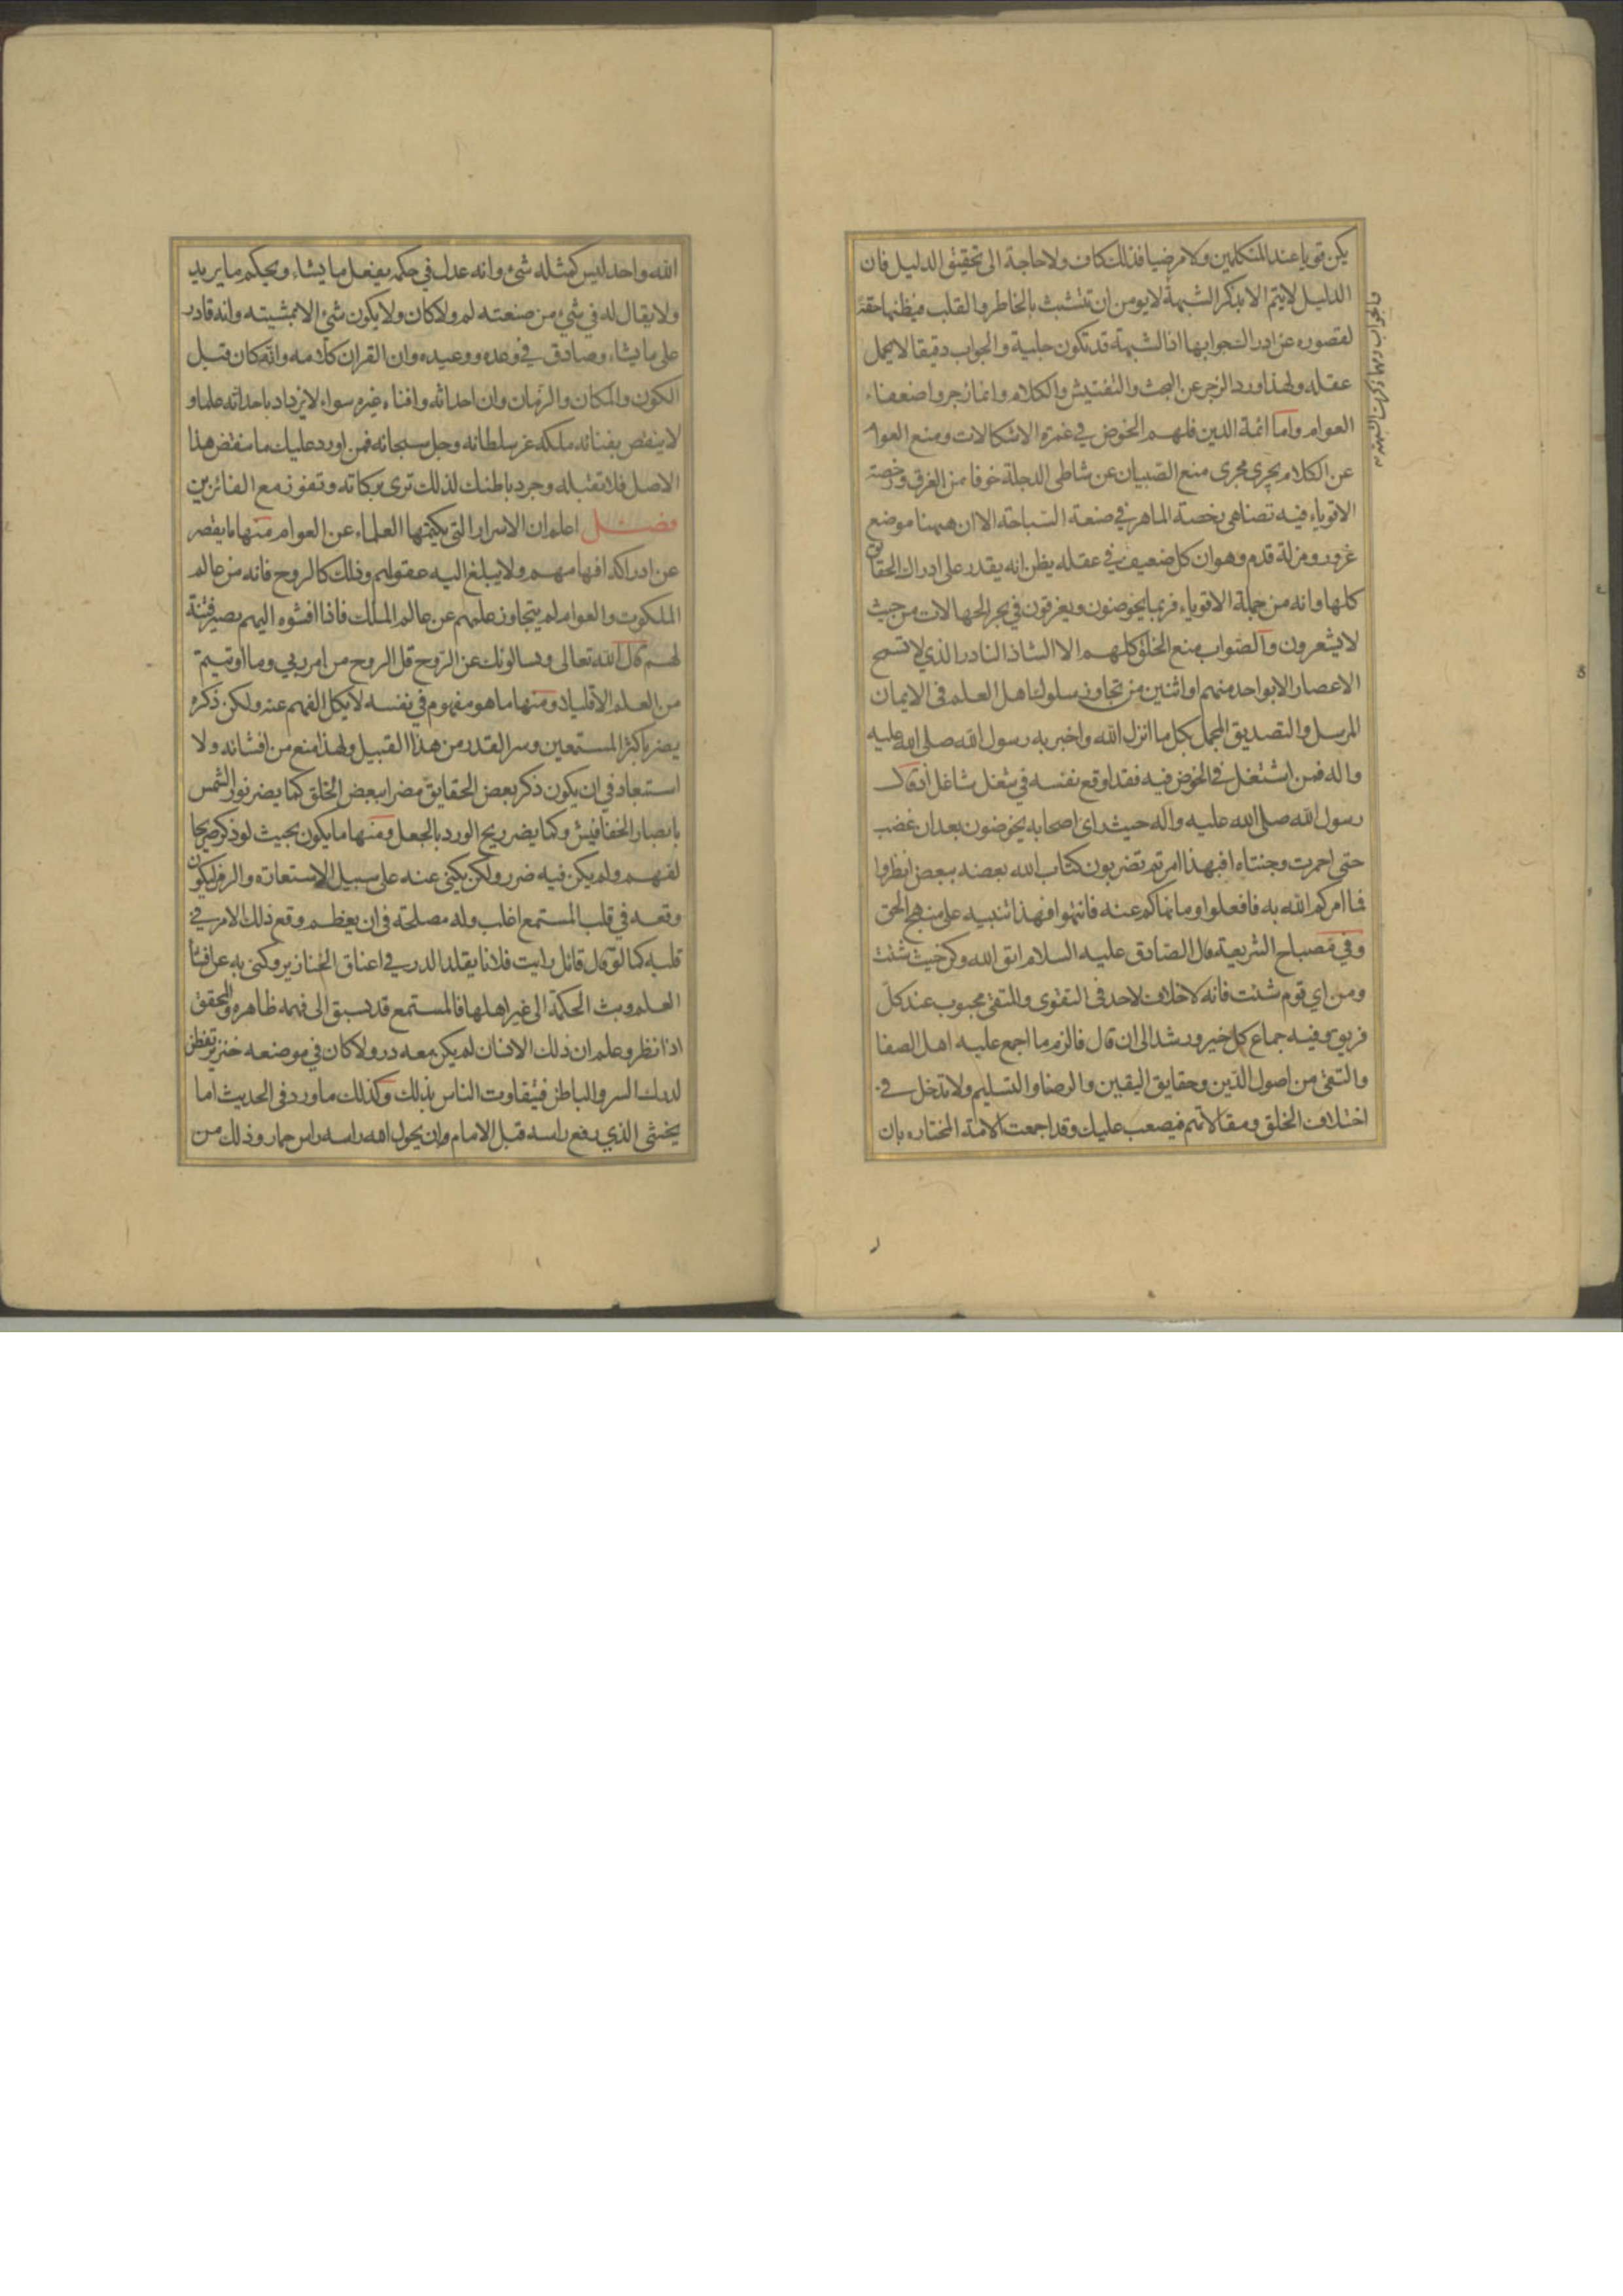 يكن قويا عند المتكلمين ولا مرضيا فذلك كاف ولا حاجة الى تحقيق الدليل فان
الدليل لا يتم الا بذكر الشبهة لا يومن ان تتشبث بالخاطر والقلب فيظنها حقة
لقصوره عن ادراك جوابها اذ الشبهة قد تكون جلية والجواب دقيقا لا يحمل
عقله ولهذا ورد الزجر عن البحث والتفتيش والكلام وانما زجروا ضعفاء
العوام واما ائمة الدين فلهم الخوض في غمرة الاشكالات ومنع العوام
عن الكلام يجري مجرى منع الصبيان عن شاطى الدجلة خوفا من الغرق ورخصة
الاقوياء فيه تضاهى رخصة الماهر في صنعة السباحة الا ان ههنا موضع
غرور ومزلة قدم وهو ان كل ضعيف في عقله يظن انه يقدر على ادراك الحقائق
كلها وانه من جملة الاقوياء فربما يخوضون ويغرقون في بحر الجهالات من حيث
لا يشعرون والصواب منع الخلق كلهم الا الشاذ النادر الذي لا تسمح
الاعصار الا بواحد منهم او اثنين من تجاوز سلوك اهل العلم في الايمان
المرسل والتصديق المجمل بكل ما انزل الله واخبر به رسول الله صلى الله عليه
واله فمن اشتغل في الخوض فيه فقد اوقع نفسه في شغل شاغل اذ قال
رسول الله صلى الله عليه واله حيث راى اصحابه يخوضون بعد ان غضب
حتى احمرت وجنتاه افبهذا امرتم تضربون كتاب الله بعضه ببعض انظروا
فما امركم الله به فافعلوا وما نهاكم عنه فانتهوا فهذا تنبيه على منهج الحق
وفي مصباح الشريعة قال الصادق عليه السلام اتق الله وكن حيث شئت
ومن اي قوم شئت فانه لا خلاف لاحد في التقوى والمتقى محبوب عند كل
فريق وفيه جماع كل خير ورشد الى ان قال فالزم ما اجمع عليه اهل الصفا
والتقى من اصول الدين وحقايق اليقين والرضا والتسليم ولا تدخل في
اختلاف الخلق ومقالاتهم فيصعب عليك وقد اجمعت الامة المختاره بان
الله واحد ليس كمثله شيء وانه عدل في حكمه يفعل ما يشاء ويحكم ما يريد
ولا يقال له في شيء من صنعته لم ولا كان ولا يكون شيء الا بمشيته وانه قادر
على ما يشاء وصادق في وعده ووعيده وان القران كلامه وانه كان قبل
الكون والمكان والزمان وان احداثه وافناء غيره سواء لا يزداد باحداثه علما و
لا ينقص بفنائه ملكه عز سلطانه وجل سبحانه فمن اورد عليك ما ينقض هذا
الاصل فلا تقبله وجرد باطنك لذلك ترى بركاته وتفوز مع الفائزين
فصل اعلم ان الاسرار التي يكتمها العلماء عن العوام منها ما يقصر
عن ادراكه افهامهم ولا يبلغ اليه عقولهم وذلك كالروح فانه من عالم
الملكوت والعوام لم يتجاوز علمهم عن عالم الملك فاذا افشوه اليهم يصير فتنة
لهم قال الله تعالى ويسالونك عن الروح قل الروح من امر ربي وما اوتيتم
من العلم الا قليلا ومنها ما هو مفهوم في نفسه لا يكل الفهم عنه ولكن ذكره
يضر باكثر المستمعين وسر القدر من هذا القبيل ولهذا منع من افشائه ولا
استبعاد في ان يكون ذكر بعض الحقايق مضرا ببعض الخلق كما يضر نور الشمس
بابصار الخفافيش وكما يضر ريح الورد بالجعل ومنها ما يكون بحيث لو ذكر صريحا
لفهم ولم يكن فيه ضرر ولكن يكنى عنه على سبيل الاستعارة والرمز ليكون
وقعه في قلب المستمع اغلب وله مصلحة في ان يعظم وقع ذلك الامر في
قلبه كما لو قال قائل رايت فلانا يقلد الدر في اعناق الخنازير وكنى به عن افشا
العلم وبث الحكمة الى غير اهلها فالمستمع قد يسبق الى فهمه ظاهره والمحقق
اذا نظر وعلم ان ذلك الانسان لم يكن معه در ولا كان في موضعه خنزير تفطن
لدرك السر والباطن فيتفاوت الناس بذلك وكذلك ما ورد في الحديث اما
يخشى الذي رفع راسه قبل الامام ان يحول الله راسه راس حمار وذلك من